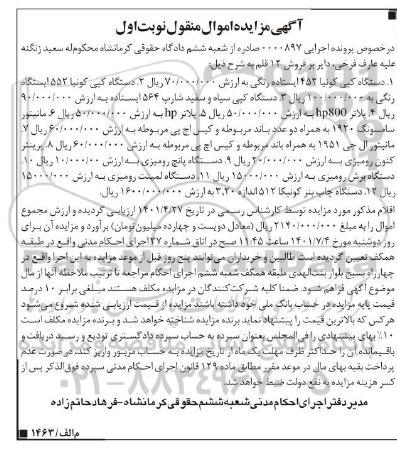 آگهی مزایده اموال منقول نوبت اول
درخصوص پرونده اجرایی ۰۰۰۰۸۹۷ صادره از شعبه ششم دادگاه حقوقی کرمانشاه محکوم‌له سعید زنگنه
علیه عارف فرخی، دایر بر فروش ۱۲ قلم به شرح ذیل:
۱. دستگاه کپی کونیا ۴۵۲ ایستاده رنگی به ارزش ۷۰/۰۰۰/۰۰۰ ریال ۲. دستگاه کپی کونیا ۵۵۲ ایستاده
رنگی به ۱۰۰/۰۰۰/۰۰۰ ریال ۳. دستگاه کپی سیاه و سفید شارپ ۵۶۴ ایستاده به ارزش ۹۰/۰۰۰/۰۰۰
ریال ۴. پلاتر hp800 به ارزش ۵۰/۰۰۰/۰۰۰ ریال ۵. پلاتر hp به ارزش ۵۰/۰۰۰/۰۰۰ ریال ۶. مانیتور
سامسونگ ۱۹۲۰ به همراه دو عدد باند مربوطه و کیس اچ پی مربوطه به ارزش ۶۰/۰۰۰/۰۰۰ ریال ۷.
مانیتور ال جی ۱۹۵۱ به همراه باند مربوطه و کیس اچ پی مربوطه به ارزش ۶۰/۰۰۰/۰۰۰ ریال ۸. پرینتر
کنون رومیزی به ارزش ۲۰/۰۰۰/۰۰۰ ریال ۹. دستگاه پانچ رومیزی به ارزش ۱۰/۰۰۰/۰۰۰ ریال ۱۰.
دستگاه برش رومیزی به ارزش ۱۵۰۰۰/۰۰۰ ریال ۱۱. دستگاه لمینت رومیزی به ارزش ۱۵۰۰۰/۰۰۰
ریال ۱۲. دستگاه چاپ بنر کونیگا ۵۱۲ اندازه ۳,۲۰ به ارزش ۱۶۰۰/۰۰۰/۰۰۰ ریال.
اقلام مذکور مورد مزایده توسط کارشناس رسمی در تاریخ ۱۴۰۱/۴/۲۷ ارزیابی گردیده و ارزش مجموع
اموال را به مبلغ ۲۱۴۰/۰۰۰/۰۰۰ ریال (معادل دویست و چهارده میلیون تومان) برآورد و مزایده آن برای
روز دوشنبه مورخ ۱۴۰۱/۷/۴ از ساعت ۱۱:۴۵ صبح در اتاق شماره ۲۷ اجرای احکام مدنی واقع در طبقه
همکف تعیین گردیده است طالبین و خریداران می‌توانند پنج روز قبل از موعد مزایده به این اجرا واقع در
چهارراه بسیج بلوار بنت‌الهدی طبقه همکف شعبه ششم اجرای احکام مراجعه تا ترتیب ملاحظه آنها از مال
موضوع آگهی فراهم شود. ضمنا کلیه شرکت‌کنندگان در مزایده مکلف هستند مبلغی برابر ۱۰ درصد
قیمت پایه مزایده در حساب بانک ملی خود داشته باشند مزایده از قیمت ارزیابی شده شروع می‌شود
هر کس که بالاترین قیمت را پیشنهاد نماید برنده مزایده شناخته خواهد شد و برنده مزایده مکلف است
۱۰٪ بهای پیشنهادی را فی‌المجلس بعنوان سپرده به حساب سپرده دادگستری تودیع و رسید دریافت و
باقیمانده آن را حداکثر ظرف مهلت یک ماه از تاریخ مزایده به حساب مزبور واریز کند، در صورت عدم
پرداخت بقیه بهای مال در موعد مقرر مطابق ماده ۱۲۹ قانون اجرای احکام مدنی سپرده فوق‌الذکر پس از
کسر هزینه مزایده به نفع دولت ضبط خواهد شد.
مدیر دفتر اجرای احکام مدنی شعبه ششم حقوقی کرمانشاه - فرهاد حاتم‌زاده
م الف/۱۴۶۳